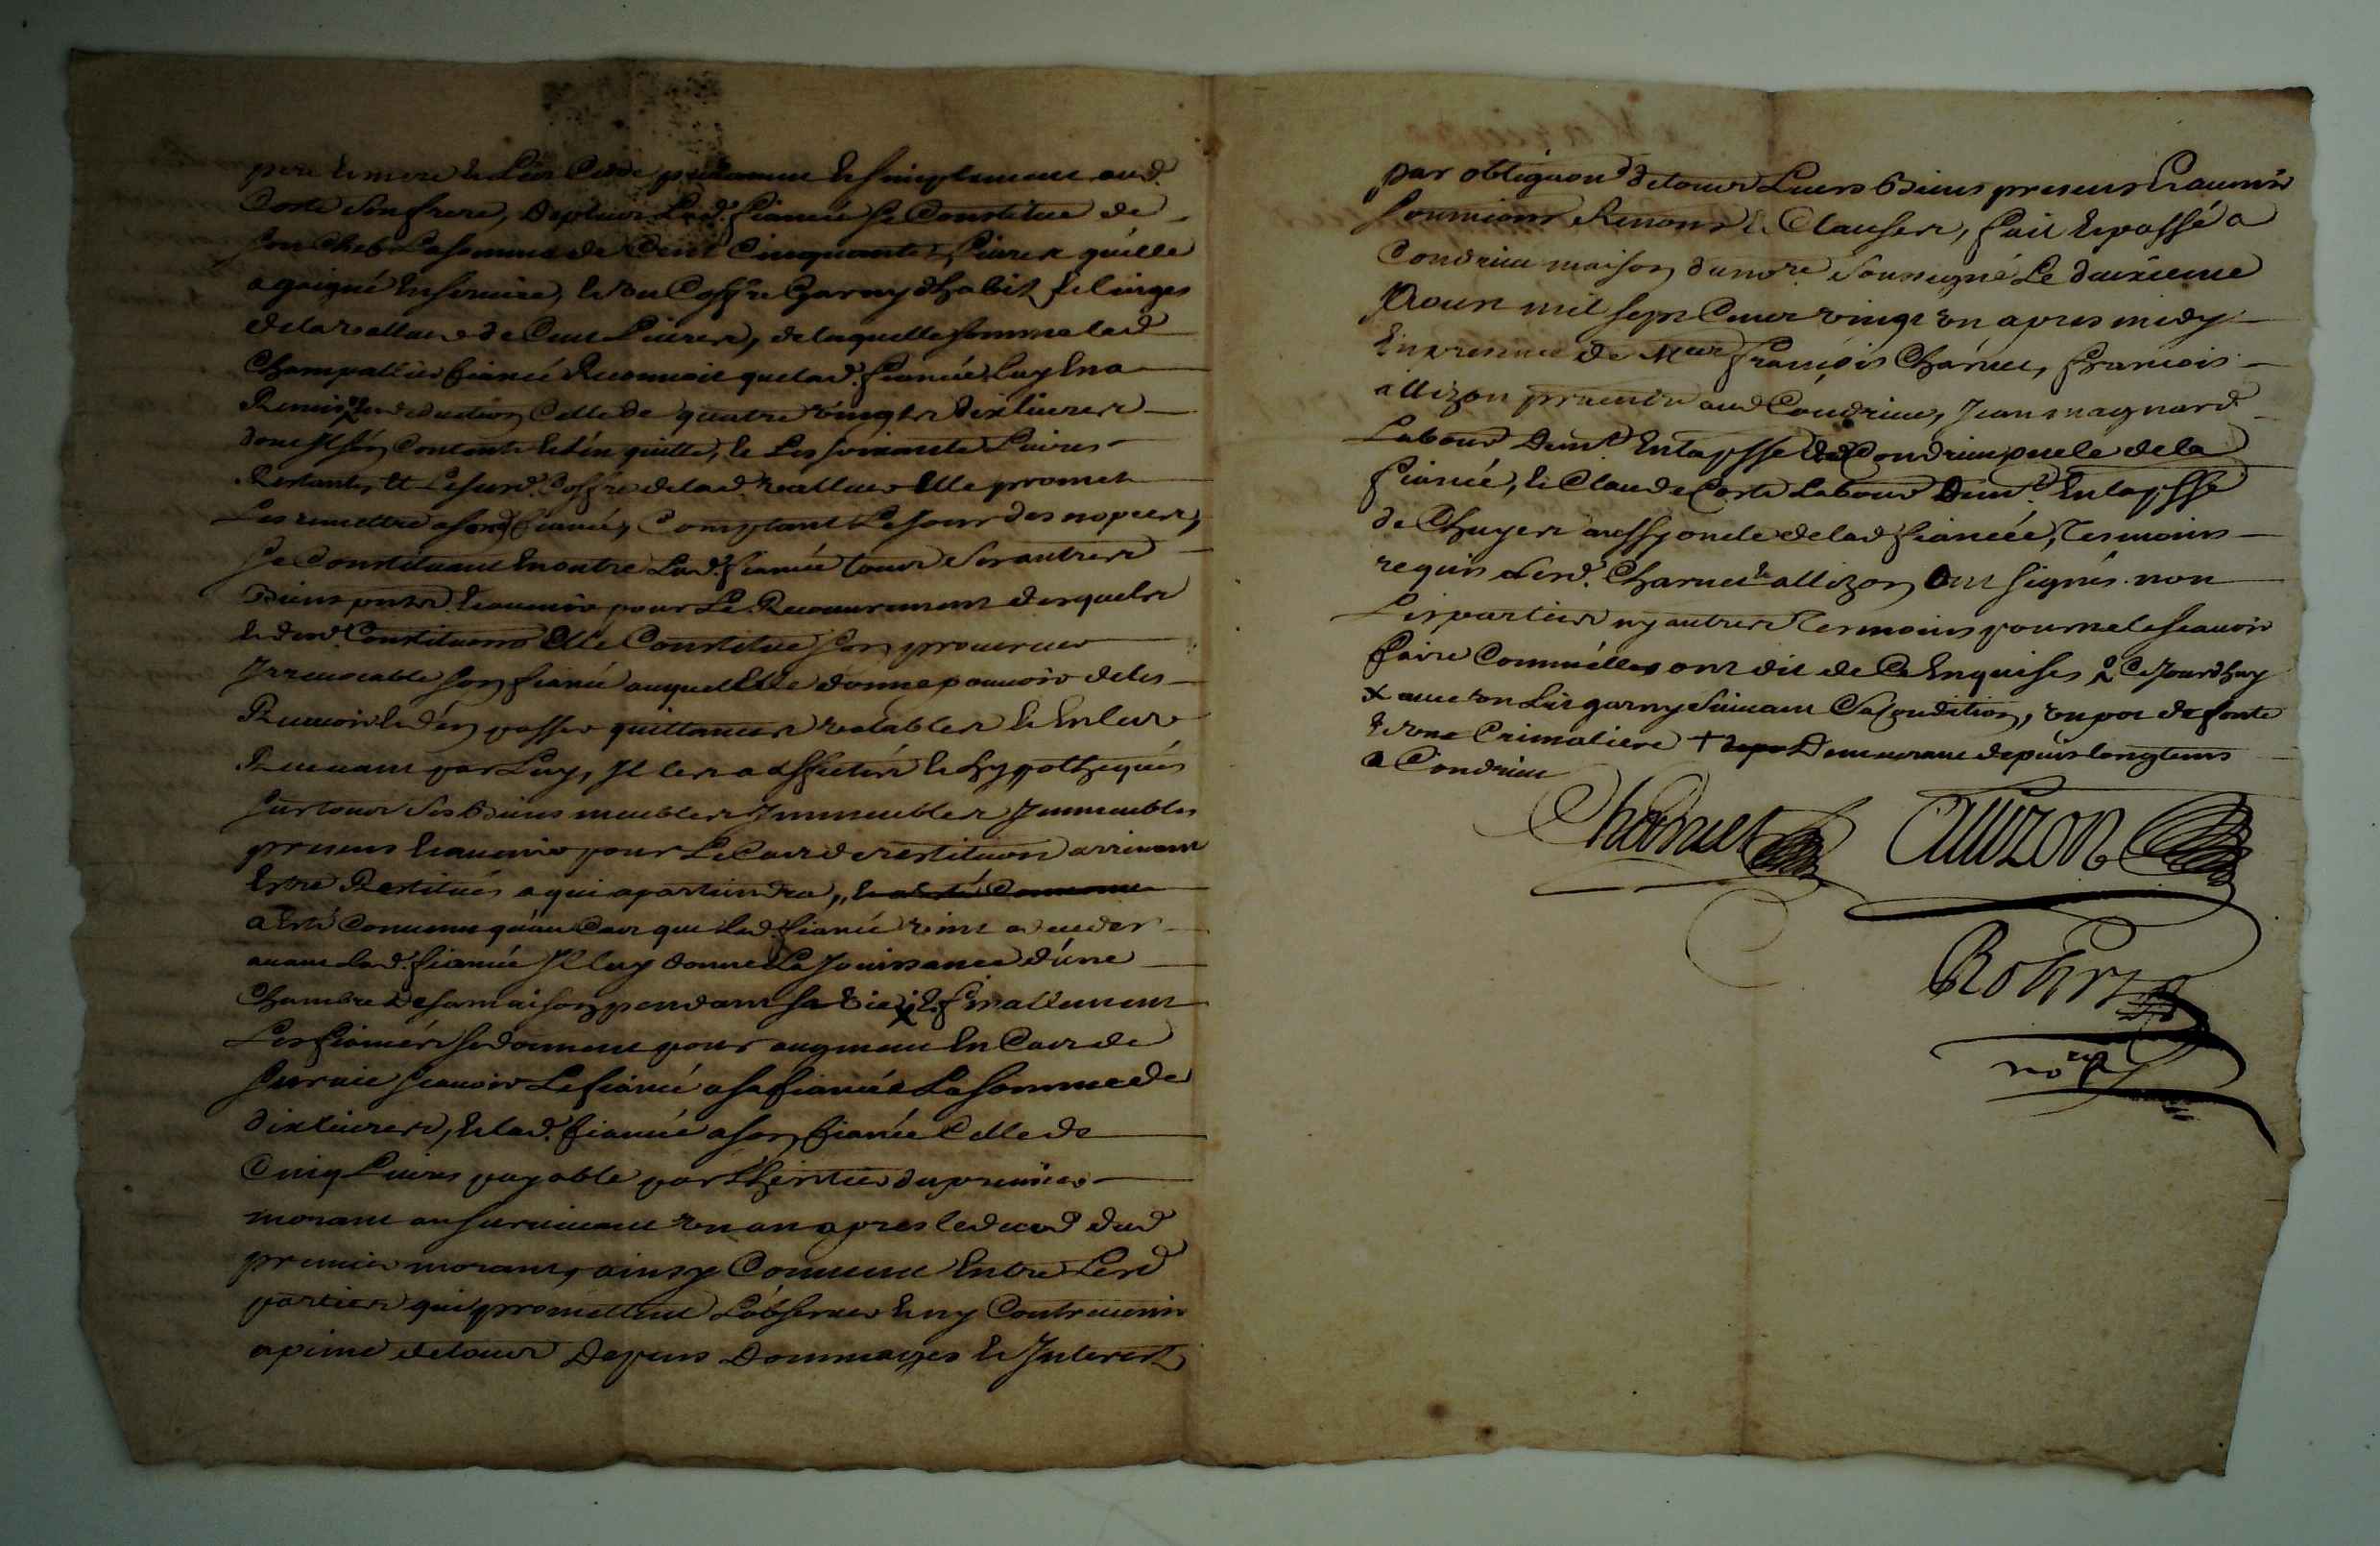 pere et mere et les Cedde purement et simplement aud.
Coste son frere, de plus lad. fiancée se Constitue de
son Chef la somme de Cent Cinquante Livres qu'elle
a gaigné en service, et un Coffre Garny d'habits et linges
de la valleur de Cent Livres, de laquelle somme led
Champallier fiancé Reconnoit que lad. fiancée luy en a
Remis celle de quatre vingts dix livres
dont il s'en Contente et l'en quitte, et les soixante Livres
Restants et le surd. Coffre de lad. valleur Elle promet
les remettre a sond fiancé, Comptant le Jour des nopces,
se Constituant en outre lad. fiancée tous ses autres
Biens pnts et avenir pour le Recouvrement desquels
et desd. Constitutions Elle Constitue son procureur
Irrevocable son fiancé auquel Elle donne pouvoir de les
Recevoir et d'en passer quittances valables et en les
Recevant par Luy, Il les a affectés et hypothequés
sur tous ses Biens meubles Immeubles Immeubles
presens et avenir pour le Cas de restitution arrivant
Estre Restitués a qui apartiendra, et a esté Convenu
a Esté Convenu qu'au Cas que led. fiancé vint a deceder
avant lad. fiancée Il luy donne La Jouissance d'une
Chambre de sa maison pendant sa vie x et finallement
Les fiancés se donnent pour augment en Cas de
survie scavoir Le fiancé a sa fiancée La somme de
dix livres, et lad. fiancée a son fiancé Celle de
Cinq Livres payable par l'heritier du premier
mourant au survivant un an apres le deced dud
premier mourant, ainsy Convenu Entre Lesd
parties qui promettent L'observer et ny Contrevenir
a peine de tous Depens Dommages et Interest
par obligaon de tous Leurs Biens presens et avenir
soumions Renonns et Clauses, fait et passé a
Condrieu maison du nore soussigné Le deuxieme
Aoust mil sept Cents vingt un apres midy
En presence de Mees François Charnet, françois
allizon praticien aud Condrieu, Jean magnard
Labour Demt En la psse de Condrieu oncle de la
fiancée, et Claude Coste Labour Demt En la psse
de Chuyer aussy oncle de lad fiancée, Tesmoins
requis Lesd. Charnet et allizon Ont signés non
Les parties ny autres Tesmoins pour ne le scavoir
faire Comm'elles ont dit de Ce Enquises Ce Jourdhuy
x avec un Lit garny suivant sa Condition, un pot de fonte
et une Crimaliere + Demeurant depuis longtems
a Condrieu
Charnet Allizon
Rohrz
nore